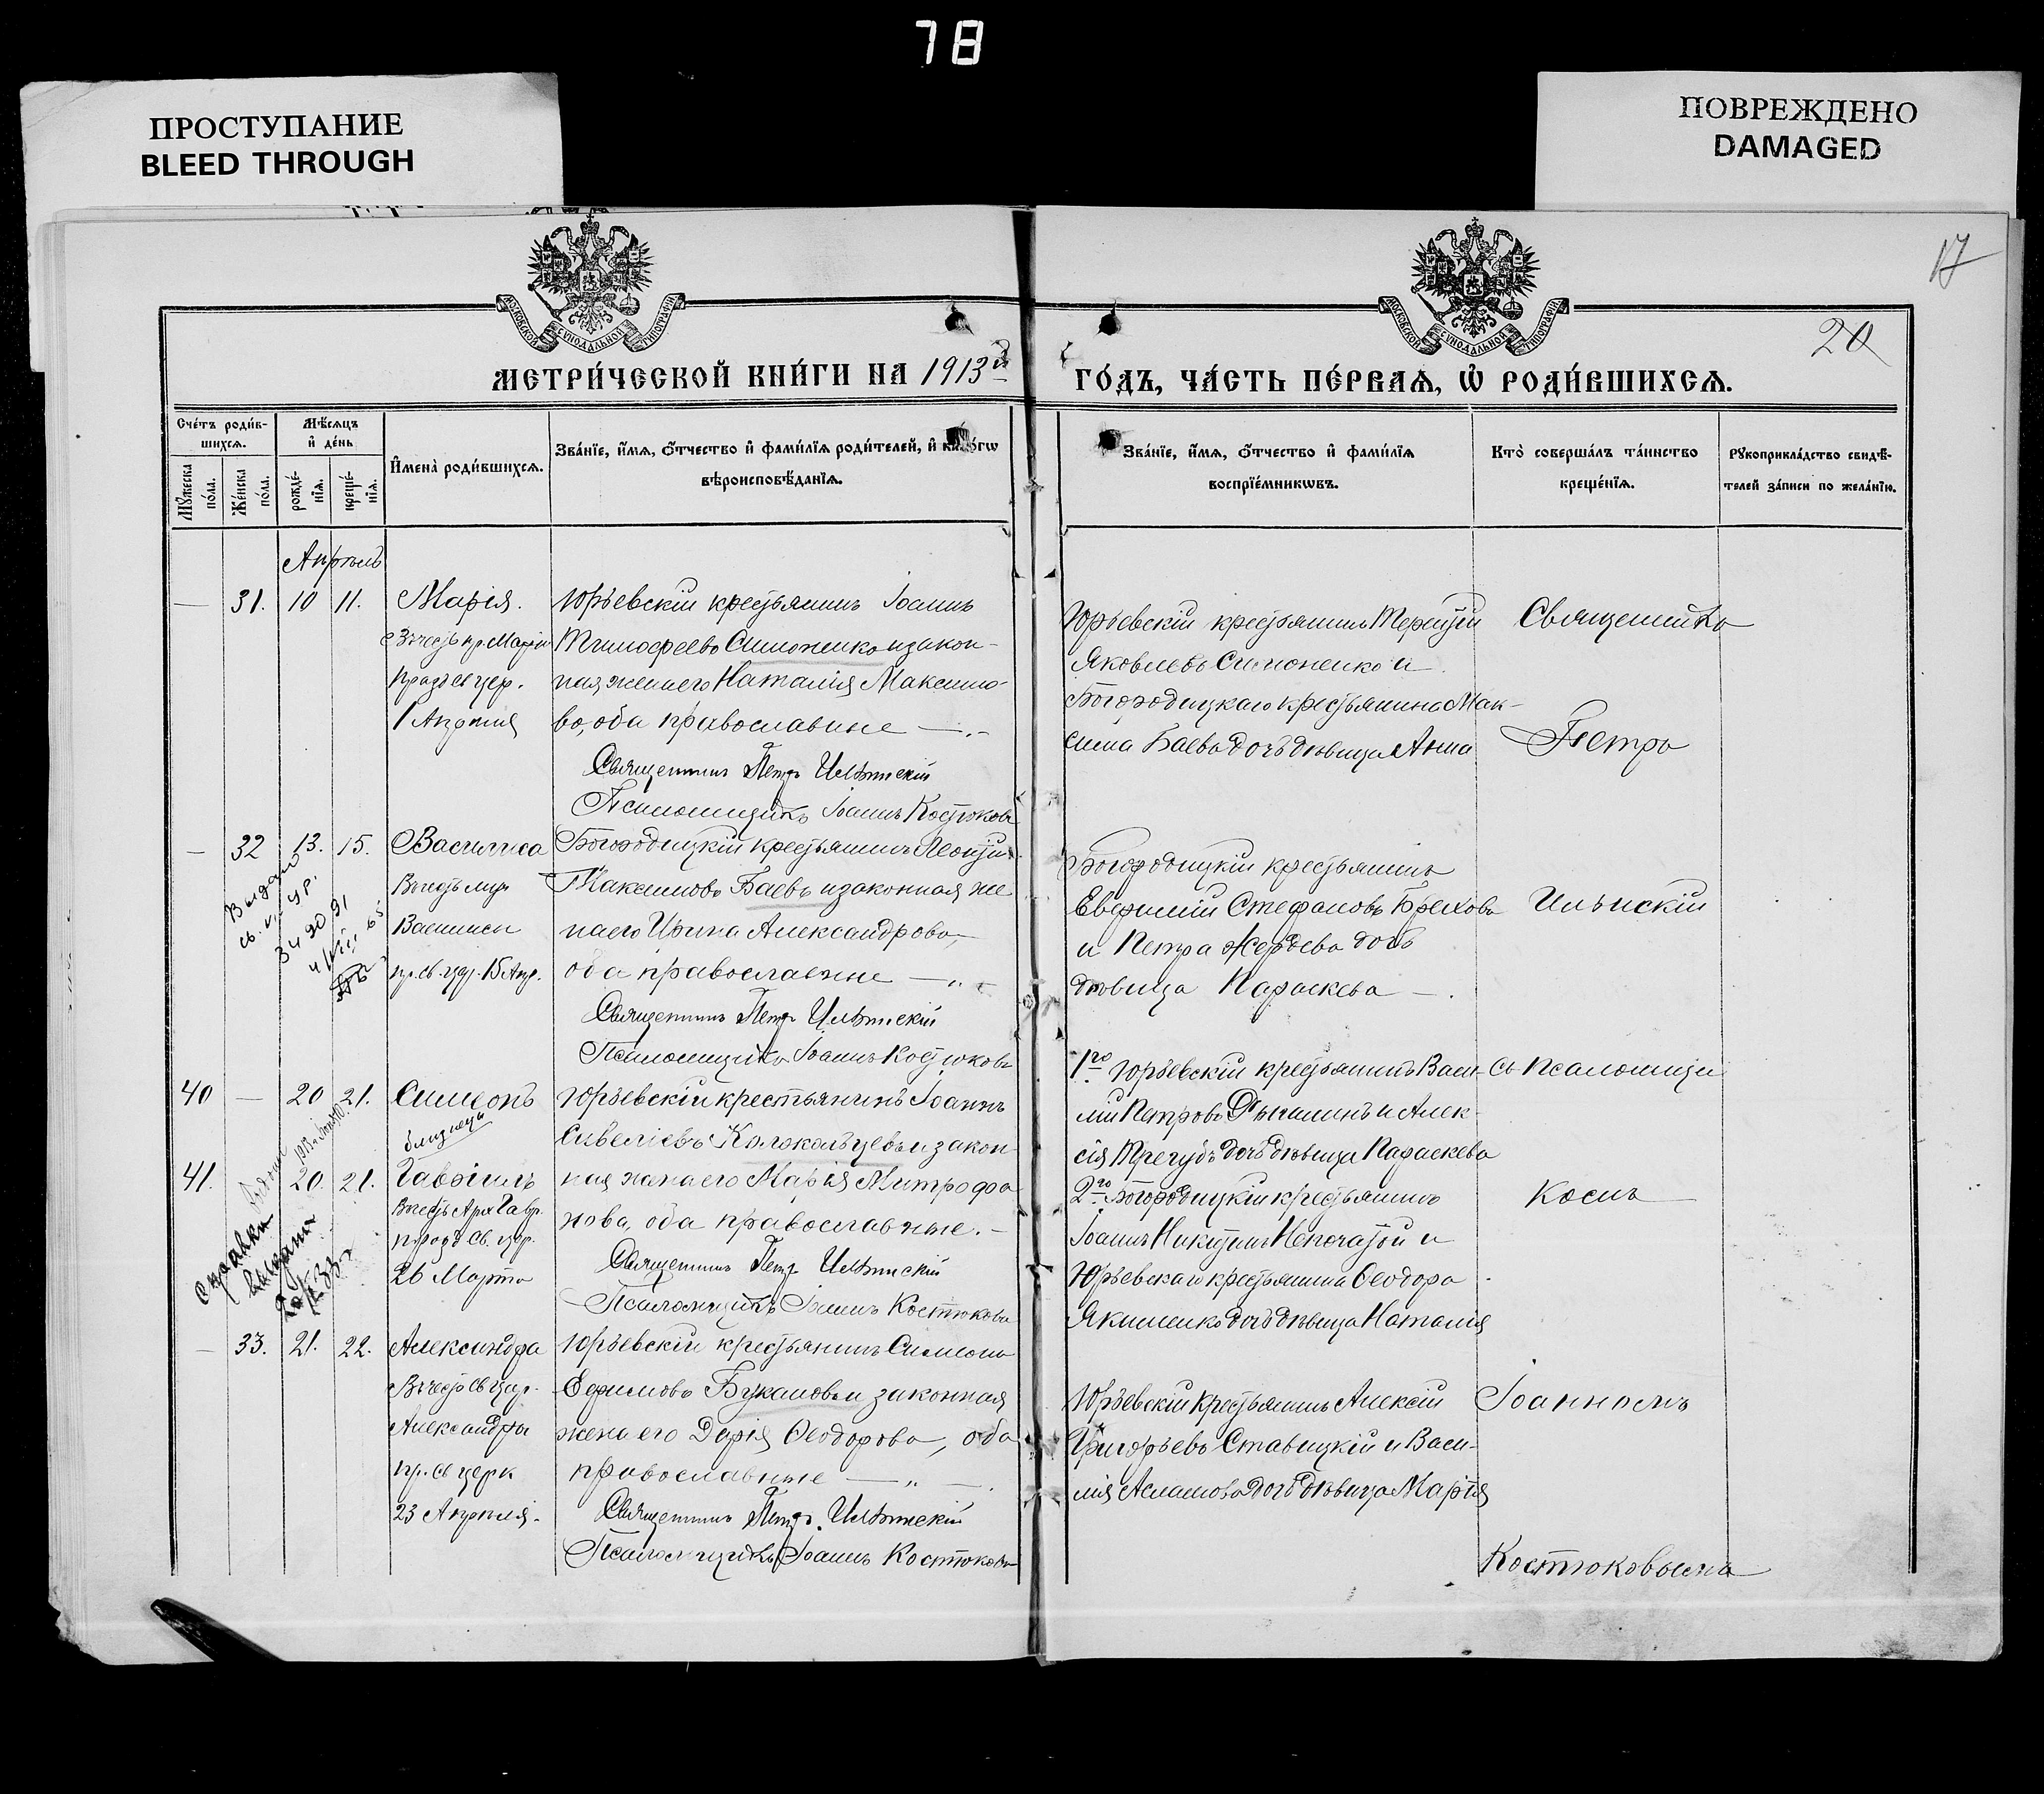 78
ПРОСТУПАНИЕ
BLEED THROUGH
ПОВРЕЖДЕНО
DAMAGED
17
20
МОСКОВСКОЙ СѴНОДАЛЬНОЙ ТИПОГРАФІИ
МОСКОВСКОЙ СѴНОДАЛЬНОЙ ТИПОГРАФІИ
МЕТРИ́ЧЕСКОЙ КНИ́ГИ НА 1913й
ГО́ДЪ, ЧА́СТЬ ПЕ́РВАѦ, Ѡ҆ РОДИ́ВШИХСѦ.
Сче́тъ роди́в-
шихсѧ.
Мꙋ́жеска по́ла.
Же́нска по́ла.
Мѣ́сѧцъ
и҆ де́нь
рожде́-
нїѧ.
креще́-
нїѧ.
И҆мена̀ роди́вшихсѧ.
Зва́нїе, и҆́мѧ, ѻ҆́тчество и҆ фами́лїѧ роди́телей, и҆ како́гѡ
вѣроисповѣ́данїѧ.
Зва́нїе, и҆́мѧ, ѻ҆́тчество и҆ фами́лїѧ
воспрїе́мникѡвъ.
Кто̀ соверша́лъ та́инство
креще́нїѧ.
Рꙋкоприкла́дство свидѣ́-
телей за́писи по жела́нїю.
Апрѣль
— 31. 10 11. Марія.
Въ честь пр Маріи
празд св цер.
1 Апрѣля
Юрьевскій крестьянинъ Іоаннъ
Тимофеевъ Симоненко и закон-
ная жена его Наталія Максимо-
ва, оба православные —
Священникъ Петръ Ильинскій
Псаломщикъ Іоаннъ Костюковъ
Юрьевскій крестьянинъ Терентій
Яковлевъ Симоненко и
Богородицкаго крестьянина Мак-
сима Баева дочь дѣвица Анна
Священникъ
Петръ
— 32 13. 15. Василиса
Въ честь муч
Василисы
пр. св. цер. 15 Апр.
Выдано
Богородицкій крестьянинъ Леонтій
Максимовъ Баевъ и законная же
на его Ирина Александрова,
оба православные —
Священникъ Петръ Ильинскій
Псаломщикъ Іоаннъ Костюковъ
Богородицкій крестьянинъ
Евфимій Стефановъ Бреховъ
и Петра Жердева дочь
дѣвица Параскева —.
Ильинскій
40 — 20 21. Симеонъ
близнецы
41. 20. 21. Гавріилъ
Въ честь Арх Гавр.
празд Св. цер.
26 Марта
Справка
выдана
Юрьевскій крестьянинъ Іоаннъ
Савеліевъ Колокольцевъ и закон
ная жена его Марія Митрофа
нова, оба православные. —
Священникъ Петръ Ильинскій
Псаломщикъ Іоаннъ Костюковъ
1го Юрьевскій крестьянинъ Васи-
лій Петровъ и Алек-
сія Трегубъ дочь дѣвица Параскева
2го Богородицкій крестьянинъ
Іоаннъ Никитинъ Непочатой и
Юрьевскаго крестьянина Ѳеодора
Якименко дочь дѣвица Наталія
съ псаломщи
комъ
— 33. 21. 22. Александра
Въ честь св цар.
Александры
пр. св церк
23 Апрѣля.
Юрьевскій крестьянинъ Симеонъ
Ефимовъ Букановъ и законная
жена его Дарія Ѳеодорова, оба
православные —
Священникъ Петръ Ильинскій
Псаломщикъ Іоаннъ Костюковъ
Юрьевскій крестьянинъ Алексій
Григорьевъ Ставицкій и Васи-
лія Асланова дочь дѣвица Марія
Іоанномъ
Костюковымъ